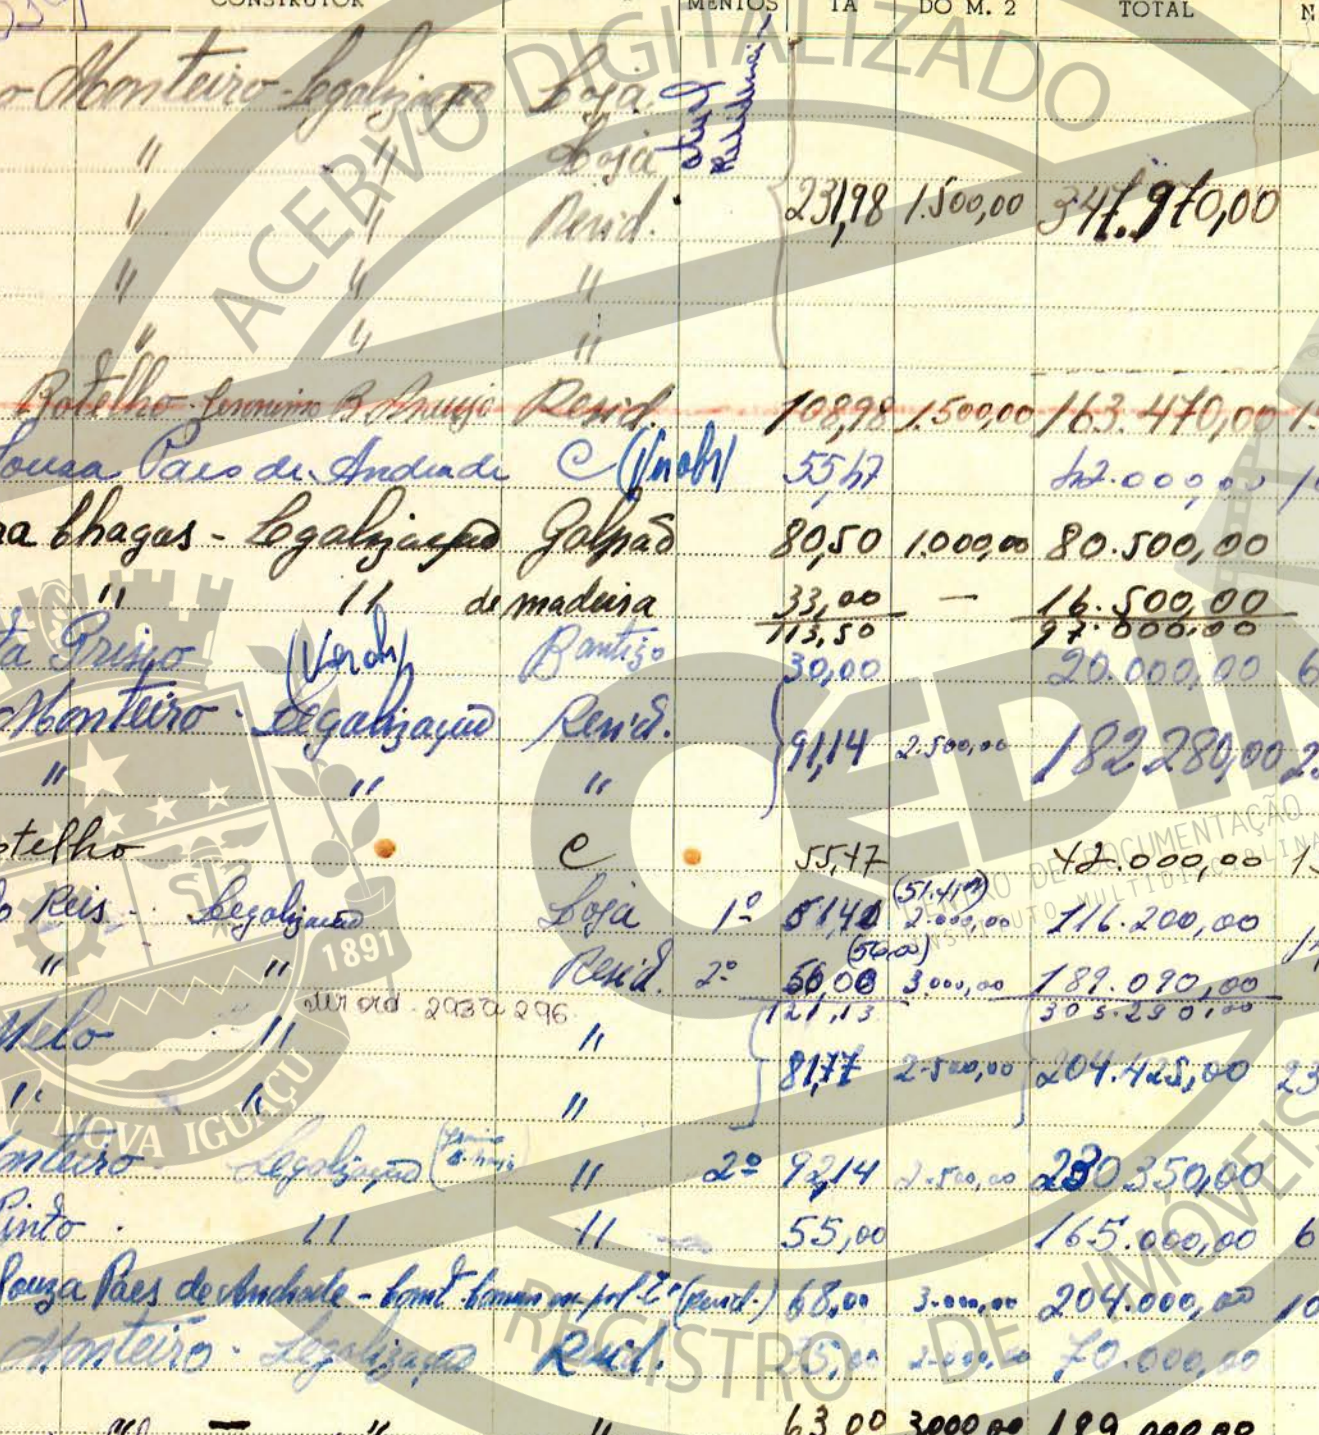 CONSTRUTOR MENTOS TA DO M. 2 TOTAL N
o Monteiro - Legalização Loja
" " Loja
" " Resid. 231,98 1.500,00 347.970,00
" " "
" " "
Botelho - Jeronimo B. Araujo Resid. 108,98 1.500,00 163.470,00 1
Souza Paes de Andrade C 55,47 42.000,00 1
ra Chagas - Legalização Galpão 80,50 1.000,00 80.500,00
" " de madeira 33,00 — 16.500,00
113,50 97.000,00
ta 30,00 20.000,00 6
Monteiro - Legalização Resid. 91,14 2.500,00 182.280,00 2
" " "
telho C 55,47 42.000,00 1
(51.41m)
o Reis - Legalização Loja 1º 2.000,00 116.200,00
(56.00)
" " Resid. 2º 56,00 3.000,00 189.090,00
293 a 296 121,13 305.290,00
Melo " "
81,77 2.500,00 204.425,00 23
" " "
onteiro Legalização " 2º 92,14 2.500,00 230.350,00
Pinto . " " 55,00 165.000,00 6
Souza Paes de Andrade - (resid.) 68,00 3.000,00 204.000,00 10
Monteiro - Legalização Resid. 2.000,00 70.000,00
— " " 63,00 3.000,00 189.000,00
ACERVO DIGITALIZADO
CEDIM
CENTRO DE DOCUMENTAÇÃO
INSTITUTO MULTIDISCIPLINA
1891
NOVA IGUAÇU
REGISTRO DE IMÓVEIS